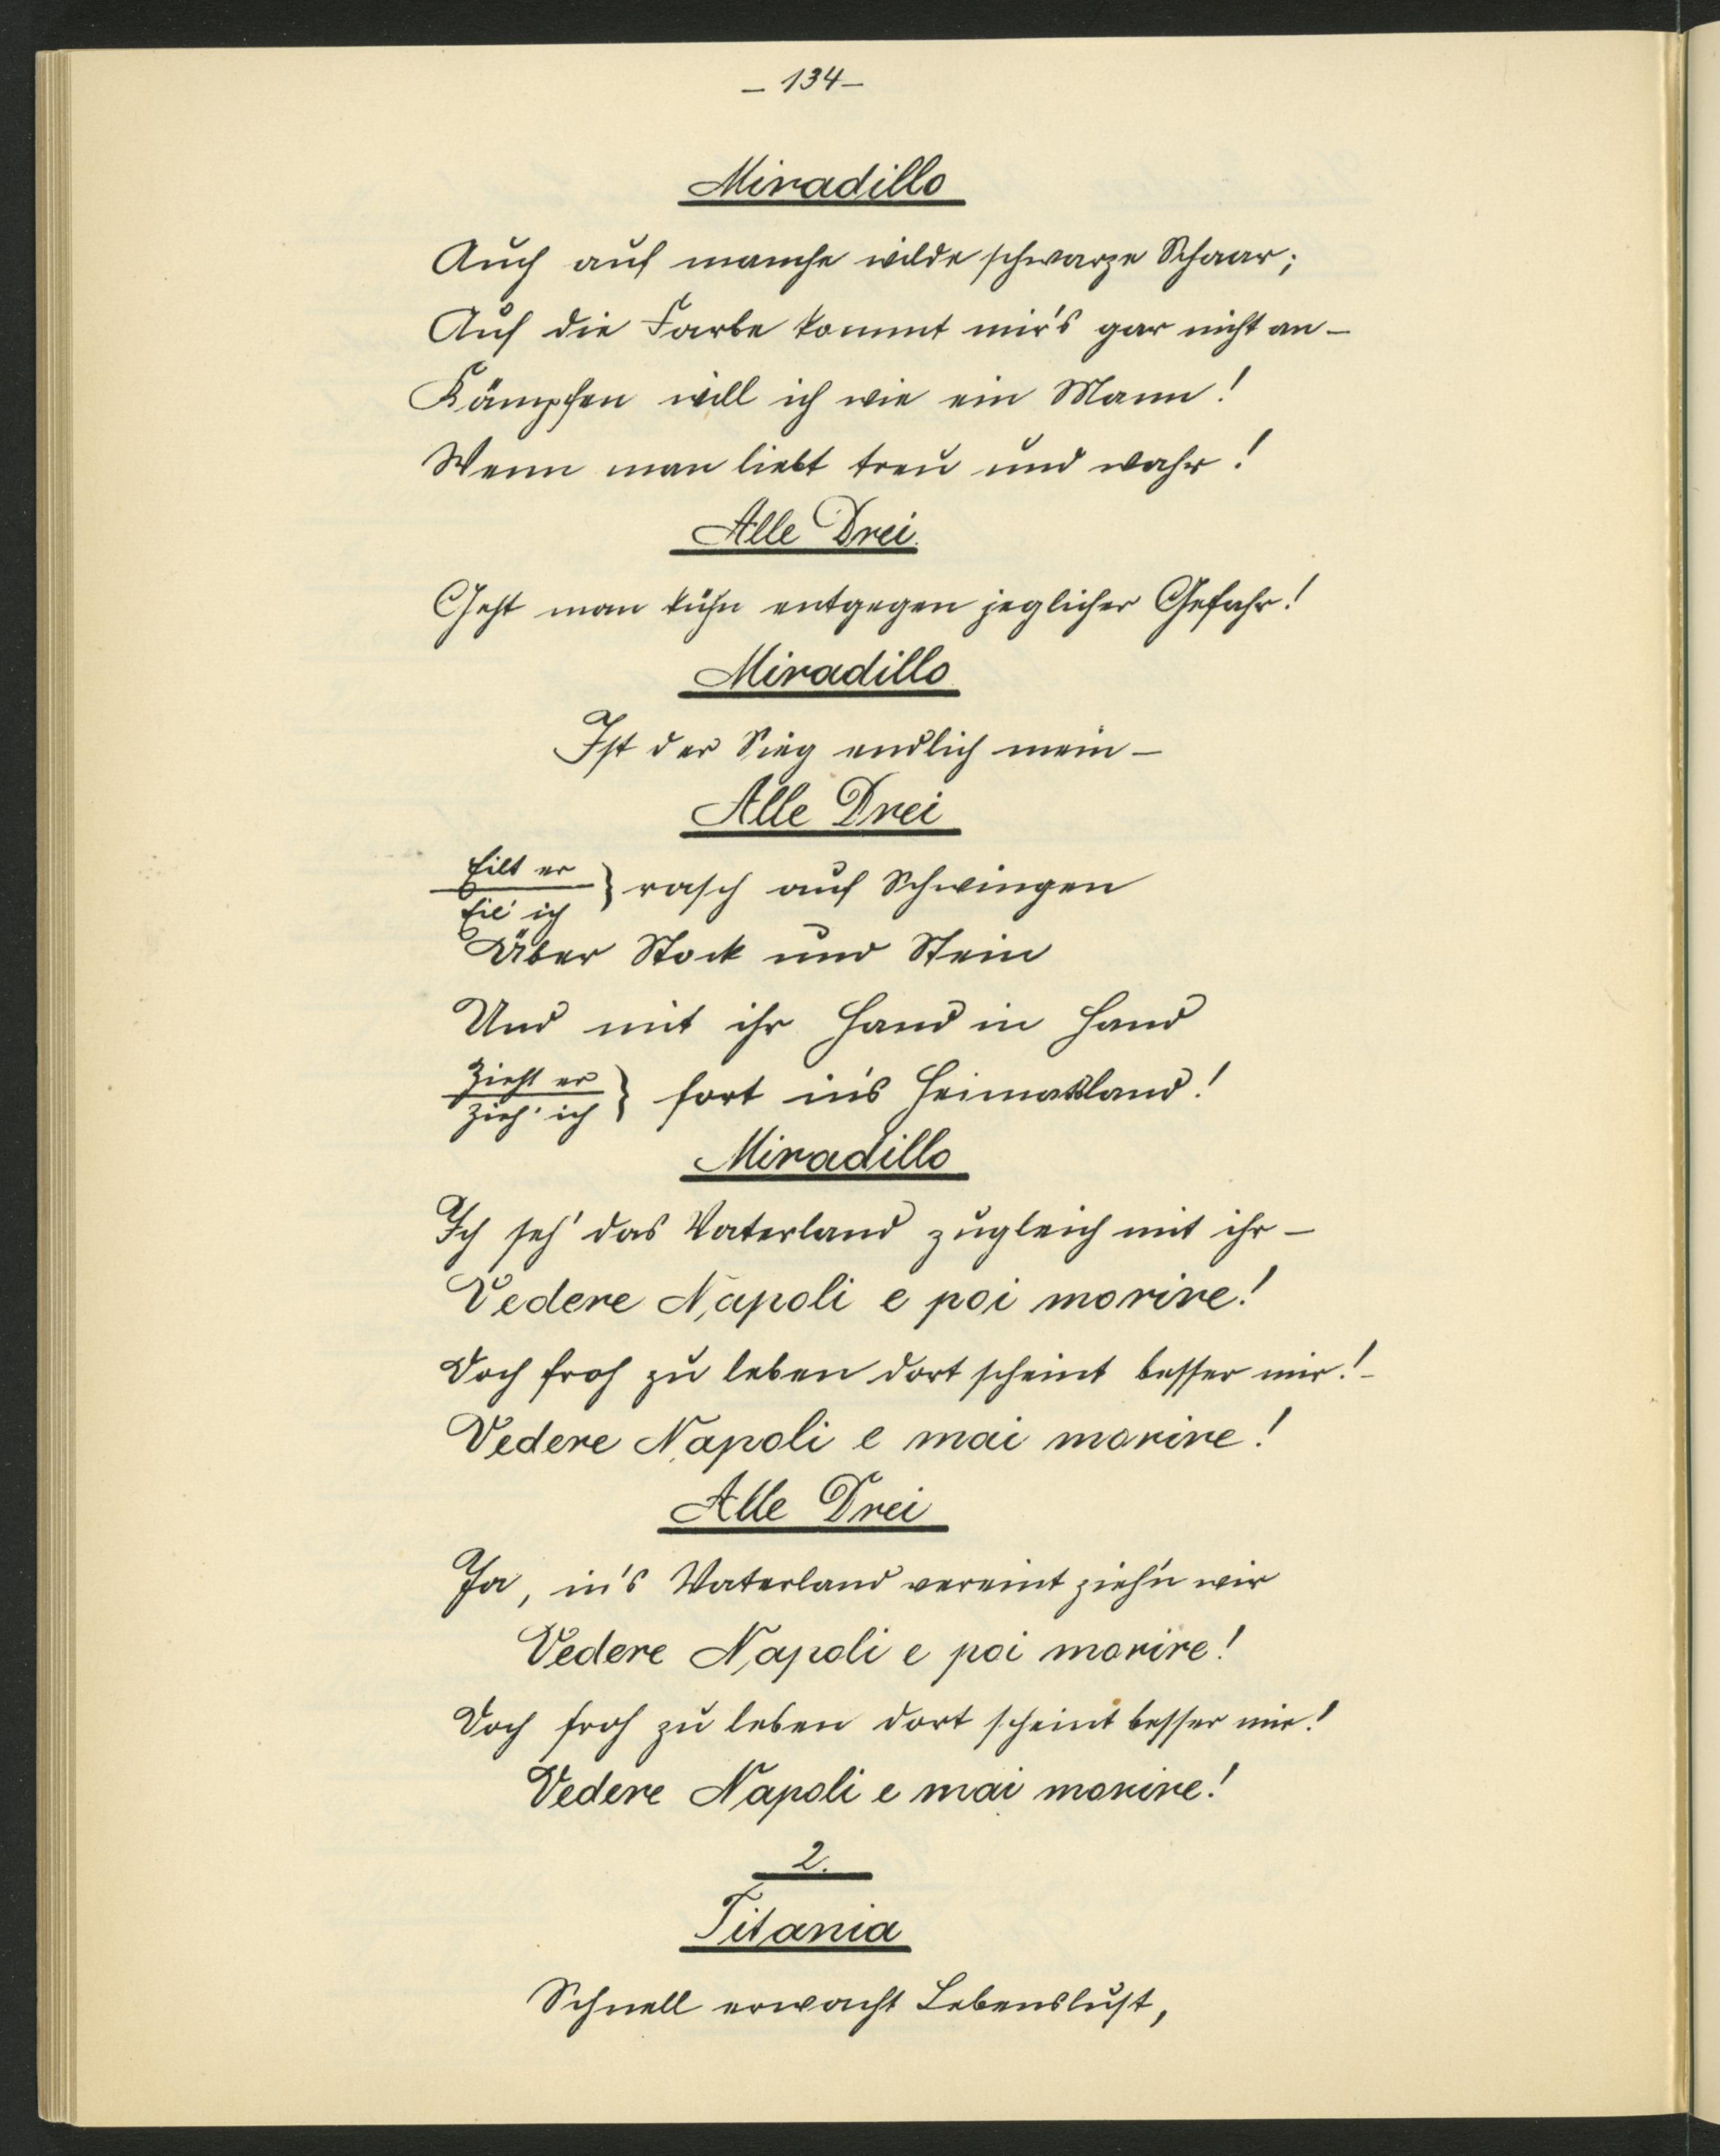 – 134 –
Miradillo
Auch auf manche wilde schwarze Schaar;
Auf die Farbe kommt mir's gar nicht an –
Kämpfen will ich wie ein Mann!
Wenn man liebt treu und wahr!
Alle Drei.
Geht man kühn entgegen jeglicher Gefahr!
Miradillo
Ist der Sieg endlich mein –
Alle Drei
Eilt er
Eil' ich } rasch auf Schwingen
Über Stock und Stein
Und mit ihr Hand in Hand
Zieht er
Zieh' ich } fort in's Heimatsland!
Miradillo
Ich seh' das Vaterland zugleich mit ihr –
Vedere Napoli e poi morire!
Doch froh zu leben dort scheint besser mir! –
Vedere Napoli e mai morire!
Alle Drei
Ja, in's Vaterland vereint zieh'n wir
Vedere Napoli e poi morire!
Doch froh zu leben dort scheint besser mir!
Vedere Napoli e mai morire!
2.
Titania
Schnell erwacht Lebenslust,